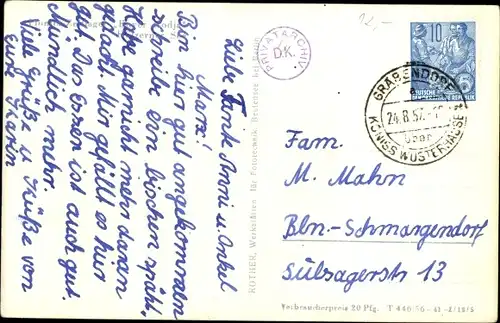 Liebe Tante Anni u. Onkel
Marx!
Bin hier gut angekommen
schreibe ein bischen spät.
Habe garnicht mehr daran
gedacht. Mir gefällt es hier
gut. Das Essen ist auch gut.
Mündlich mehr.
Viele Grüße u. Küße von
Eure Karin
PRIVATARCHIV
D.K.
12,-
10
DEUTSCHE
DEMOKRATISCHE REPUBLIK
GRÄBENDORF
24.8.57
über
KÖNIGS WUSTERHAUSEN
Fam.
M. Mahn
Bln-Schmargendorf
Sulzaerstr 13
ROTHER, Werkstätten für Fototechnik,
Verbraucherpreis 20 Pfg.